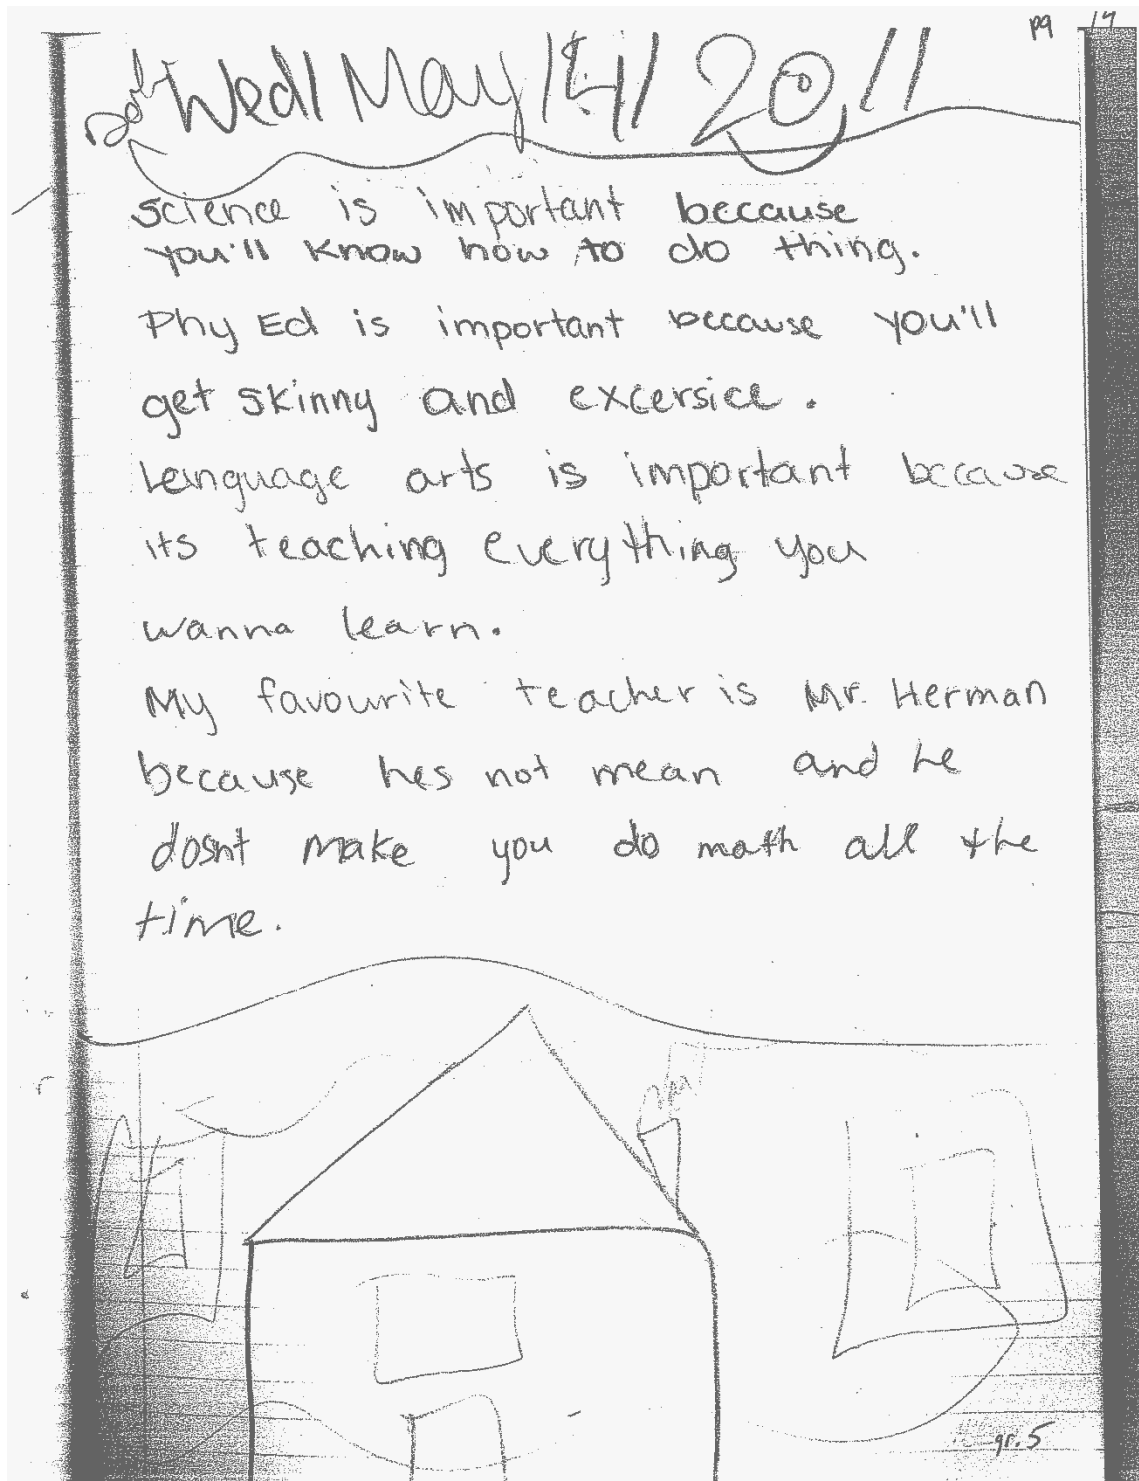 pg 14
Wed/ May/ 14/ 2011
science is important because
you'll know how to do thing.
Phy Ed is important because you'll
get skinny and excersice.
Language arts is important because
its teaching everything you
wanna learn.
My favourite teacher is Mr. Herman
because hes not mean and he
dosnt make you do math all the
time.
gr. 5